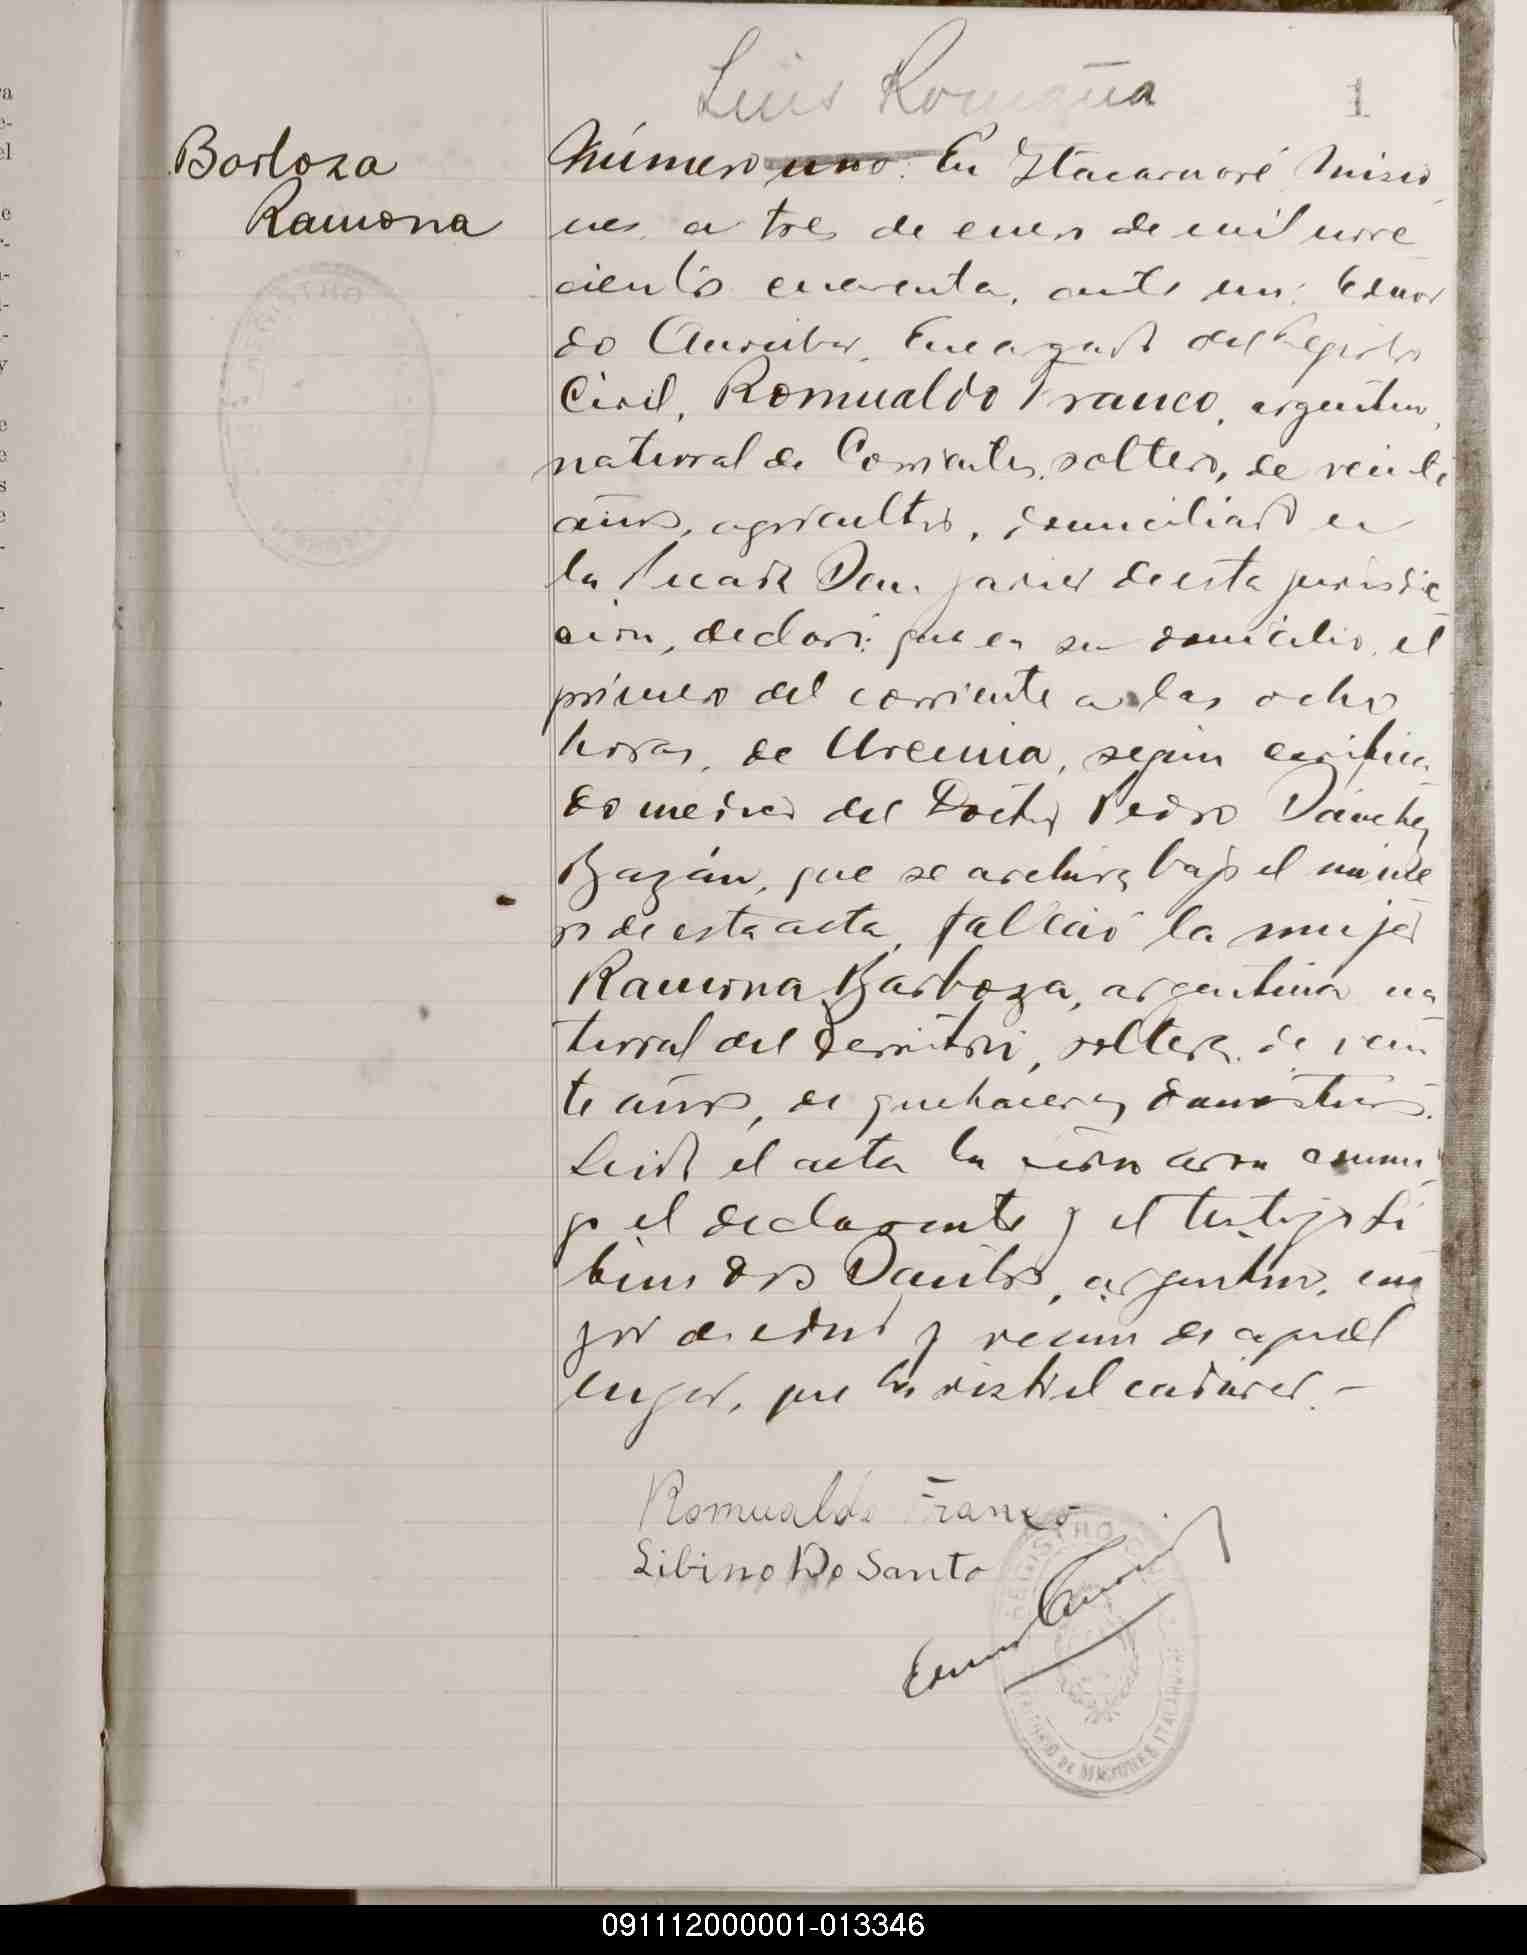 Luis
1
Barboza
Ramona
Número uno: En Itacaruaré Misio
nes, a tres de enero de mil nove
cientos cuarenta, ante mi: Eduar
do Encargado del Registro
Civil, Romualdo Franco, argentino,
natural de Corrientes, soltero, de veinte
años, agricultor, domiciliado en
la Picada San Javier de esta jurisdic
cion, declaró: que en su domicilio, el
primero del corriente a las ocho
horas, de Uremia, según certifica
do medico del Doctor Pedro Sánchez
Bazán, que se archiva bajo el núme
ro de esta acta, falleció la mujer
Ramona Barboza, argentina na
tural del Territorio, soltera, de vein
te años, de quehaceres domésticos.
Leida el acta la firmaron conmi
go el declarante y el testigo Li
bino Dos Santos, argentino, ma
yor de edad y vecino de aquel
lugar, que ha visto el cadáver. —
Romualdo Franco
Libino Do Santo
REGISTRO
TERRITORIO DE MISIONES ITACARUARÉ
091112000001-013346